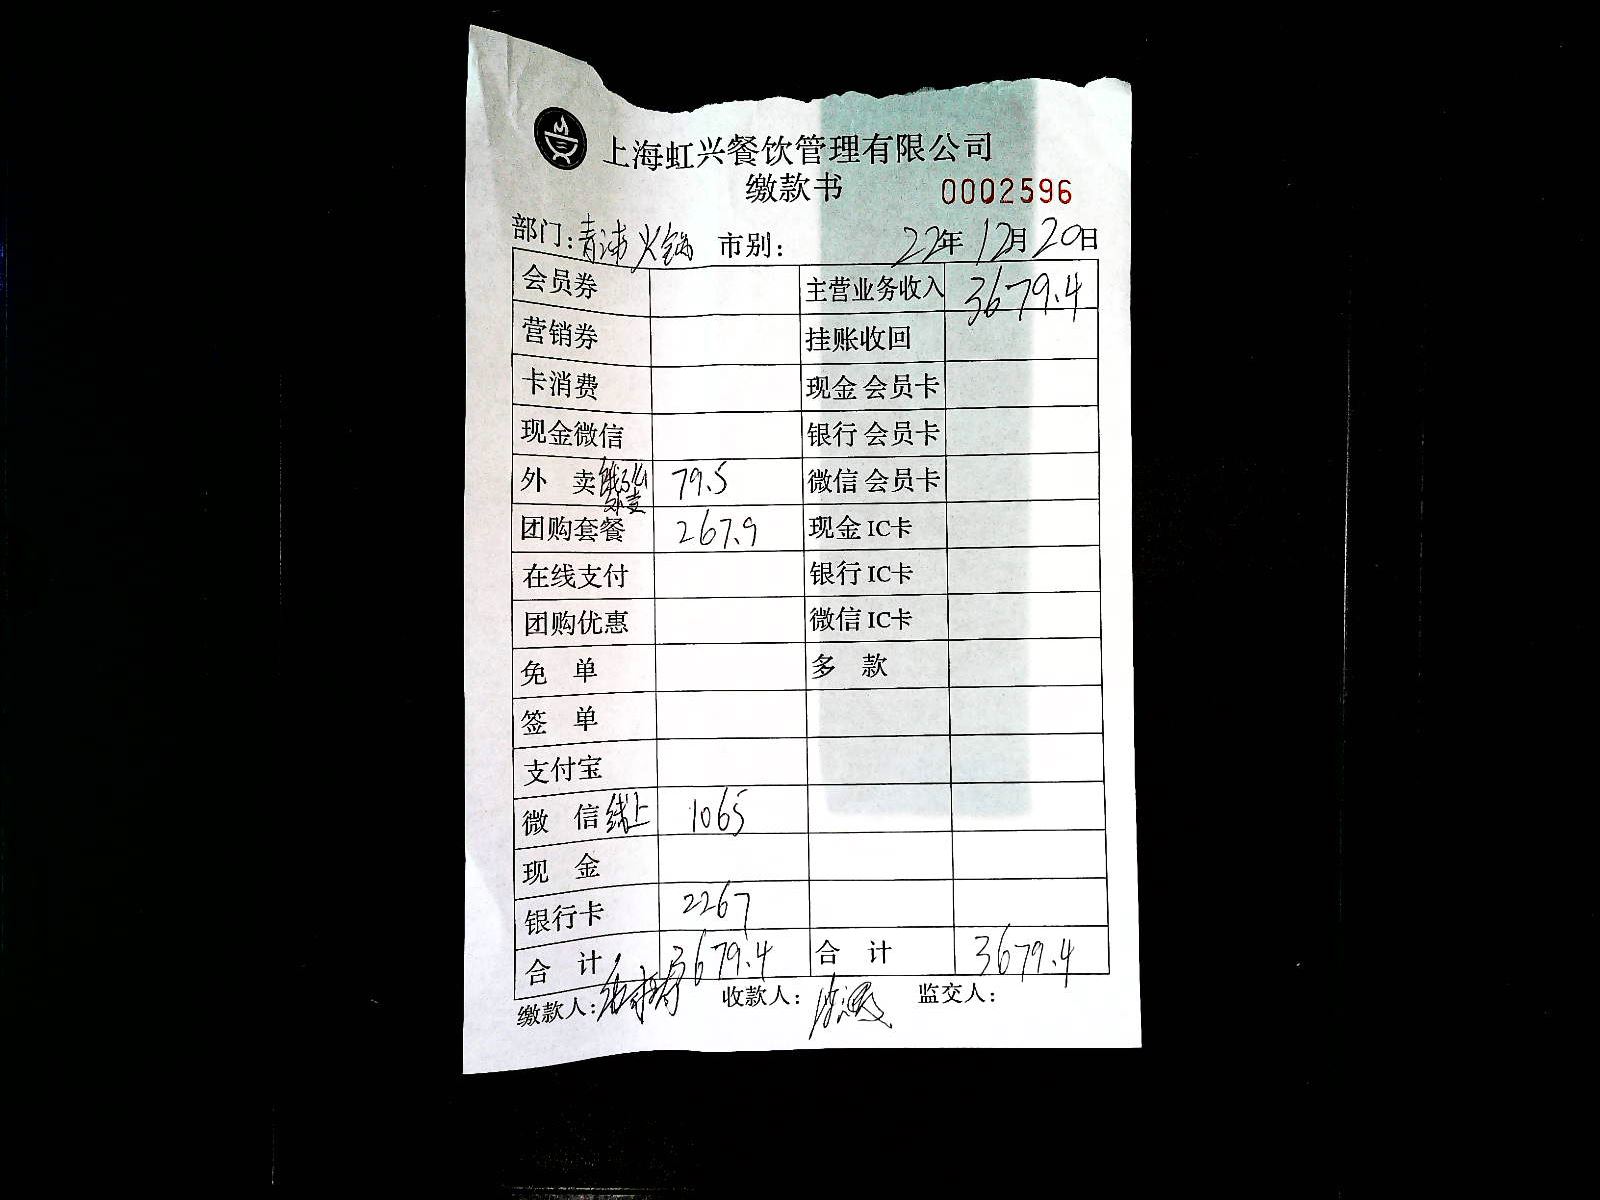 上海虹兴餐饮管理有限公司
缴款书 0002596
部门：青浦火锅 市别： 22年12月20日
会员券 主营业务收入 3679.4
营销券 挂账收回
卡消费 现金 会员卡
现金微信 银行 会员卡
外 卖 饿了么外卖 79.5 微信 会员卡
团购套餐 267.9 现金 IC卡
在线支付 银行 IC卡
团购优惠 微信 IC卡
免 单 多 款
签 单
支付宝
微 信 线上 1065
现 金
银行卡 2267
合 计 3679.4 合 计 3679.4
缴款人： 收款人： 监交人：